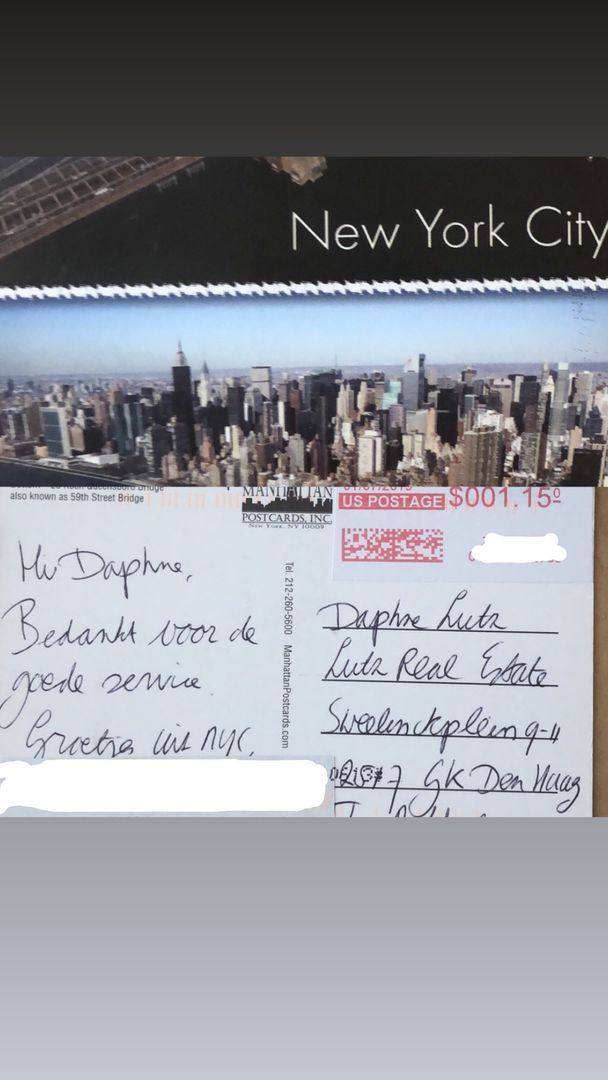 New York City
also known as 59th Street Bridge
MANHATTAN
POSTCARDS, INC.
NEW YORK, NY 10009
US POSTAGE $001.15⁰
Tel. 212-260-5600 ManhattanPostcards.com
Hi Daphne,
Bedankt voor de
goede service.
Groetjes uit NYC,
Daphne Lutz
Lutz Real Estate
Sweelinckplein 9-11
GK Den Haag